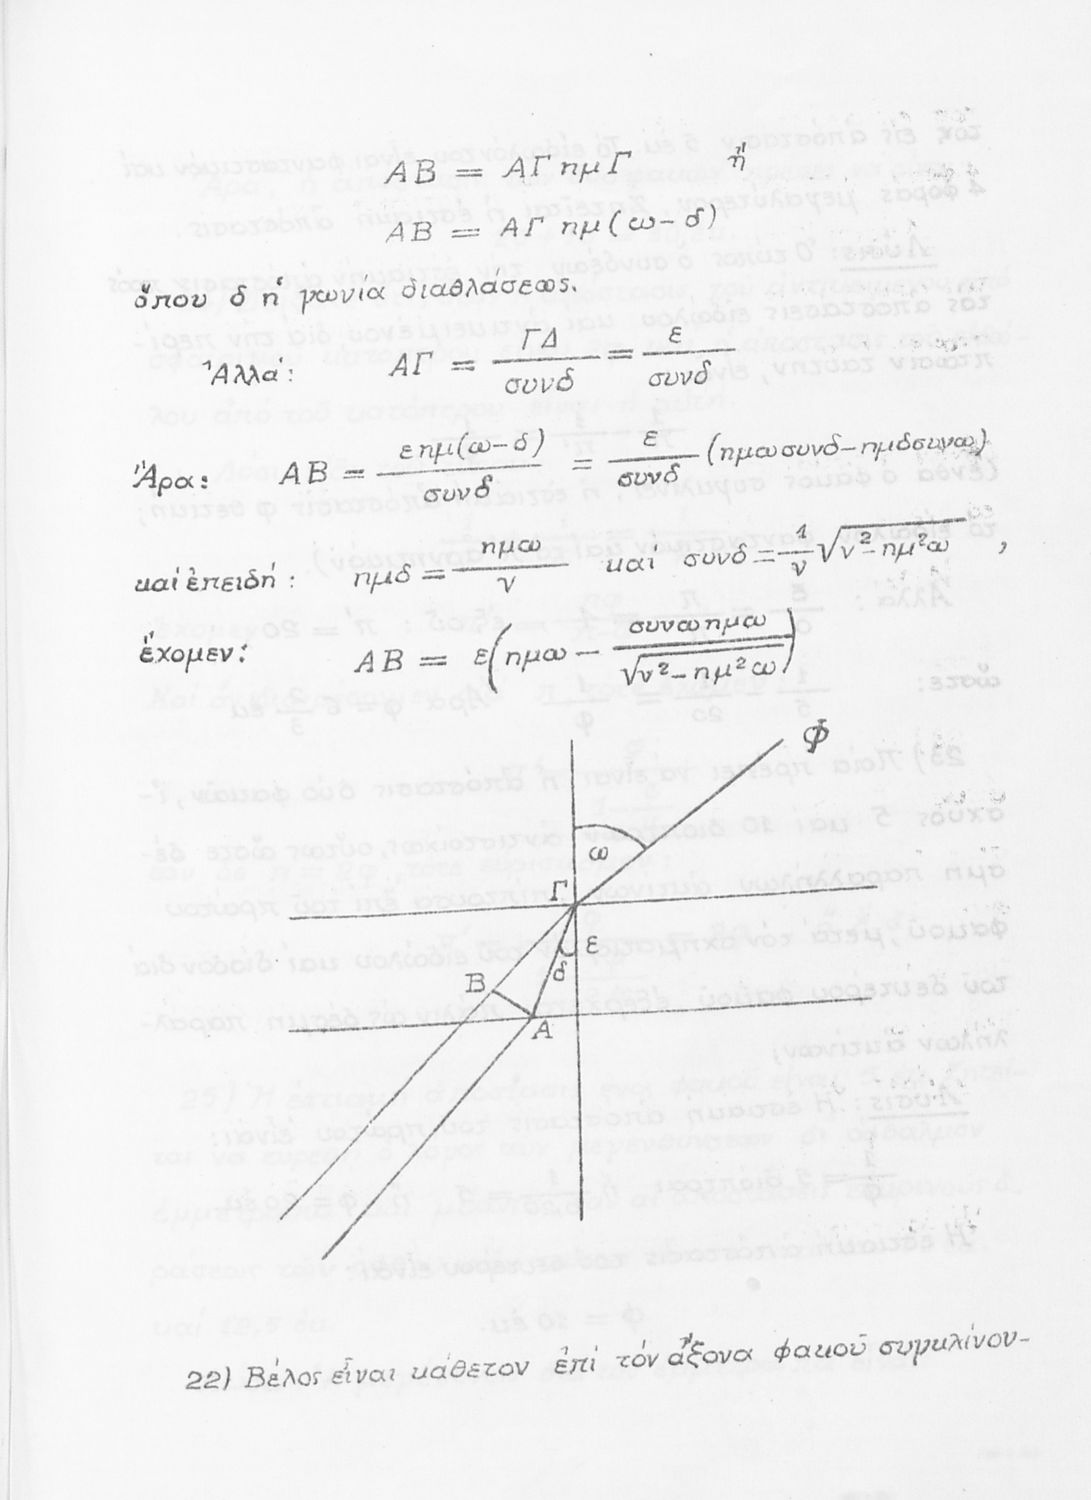 ΑΒ = ΑΓ ημ Γ ἤ
ΑΒ = ΑΓ ημ (ω - δ)
ὅπου δ ἡ γωνία διαθλάσεως.
Ἀλλά: ΑΓ = ΓΔ/συνδ = ε/συνδ
Ἄρα: ΑΒ = ε ημ(ω-δ)/συνδ = ε/συνδ (ημωσυνδ-ημδσυνω)
καί ἐπειδή: ημδ = ημω/ν καί συνδ = 1/ν √(ν²-ημ²ω) ,
ἔχομεν: ΑΒ = ε(ημω - συνωημω/√(ν²-ημ²ω))
Φ
ω
Γ
ε
δ
Β
Α
22) Βέλος εἶναι κάθετον ἐπί τόν ἄξονα φακοῦ συγκλίνον-